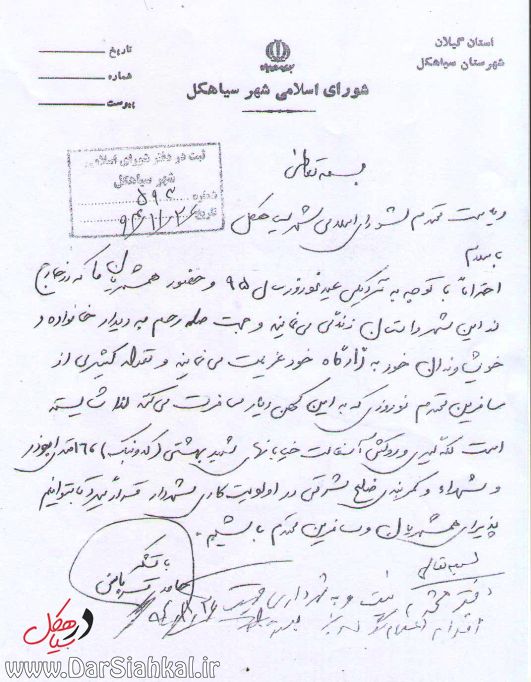 استان گیلان
شهرستان سیاهکل
جمهوری اسلامی ایران
شورای اسلامی شهر سیاهکل
تاریخ
شماره
پیوست
ثبت در دفتر شورای اسلامی
شهر سیاهکل
شماره ۵۹۲
تاریخ ۹۴/۱۱/۲۶
بسمه تعالی
ریاست محترم شورای اسلامی شهر سیاهکل
با سلام
احتراماً با توجه به نزدیکی عید نوروز سال ۹۵ و حضور همشهریان ما که در خارج
از این شهر و استان زندگی می نمایند و جهت صله رحم به دیدار خانواده و
خویشاوندان خود به زادگاه خود عزیمت می نمایند و تعداد کثیری از
مسافرین محترم نوروزی که به این کهن دیار مسافرت می کنند لذا شایسته
است لکه گیری و روکش آسفالت خیابانهای شهید بهشتی ( ) اباذر
و شهداء و کمربندی ضلع شرقی در اولویت کاری شهرداری قرار گیرد تا بتوانیم
پذیرای همشهریان و مسافرین محترم باشیم.
با تشکر
بسمه تعالی
دفتر محترم ثبت و به شهرداری جهت
اقدام اعلام گردد
در سیاهکل
www.DarSiahkal.ir